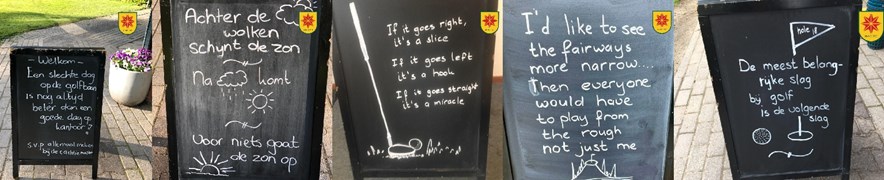 - Welkom -
Een slechte dag
op de golfbaan
is nog altijd
beter dan een
goede dag op
kantoor!
s.v.p. allemaal melden
bij de caddiemaster
Achter de
wolken
schynt de zon
Na komt
Voor niets gaat
de zon op
If it goes right,
it's a slice
If it goes left
it's a hook
If it goes straight
it's a miracle
I'd like to see
the fairways
more narrow....
Then everyone
would have
to play from
the rough
not just me
hole it
De meest belang-
rijke slag
bij golf
is de volgende
slag